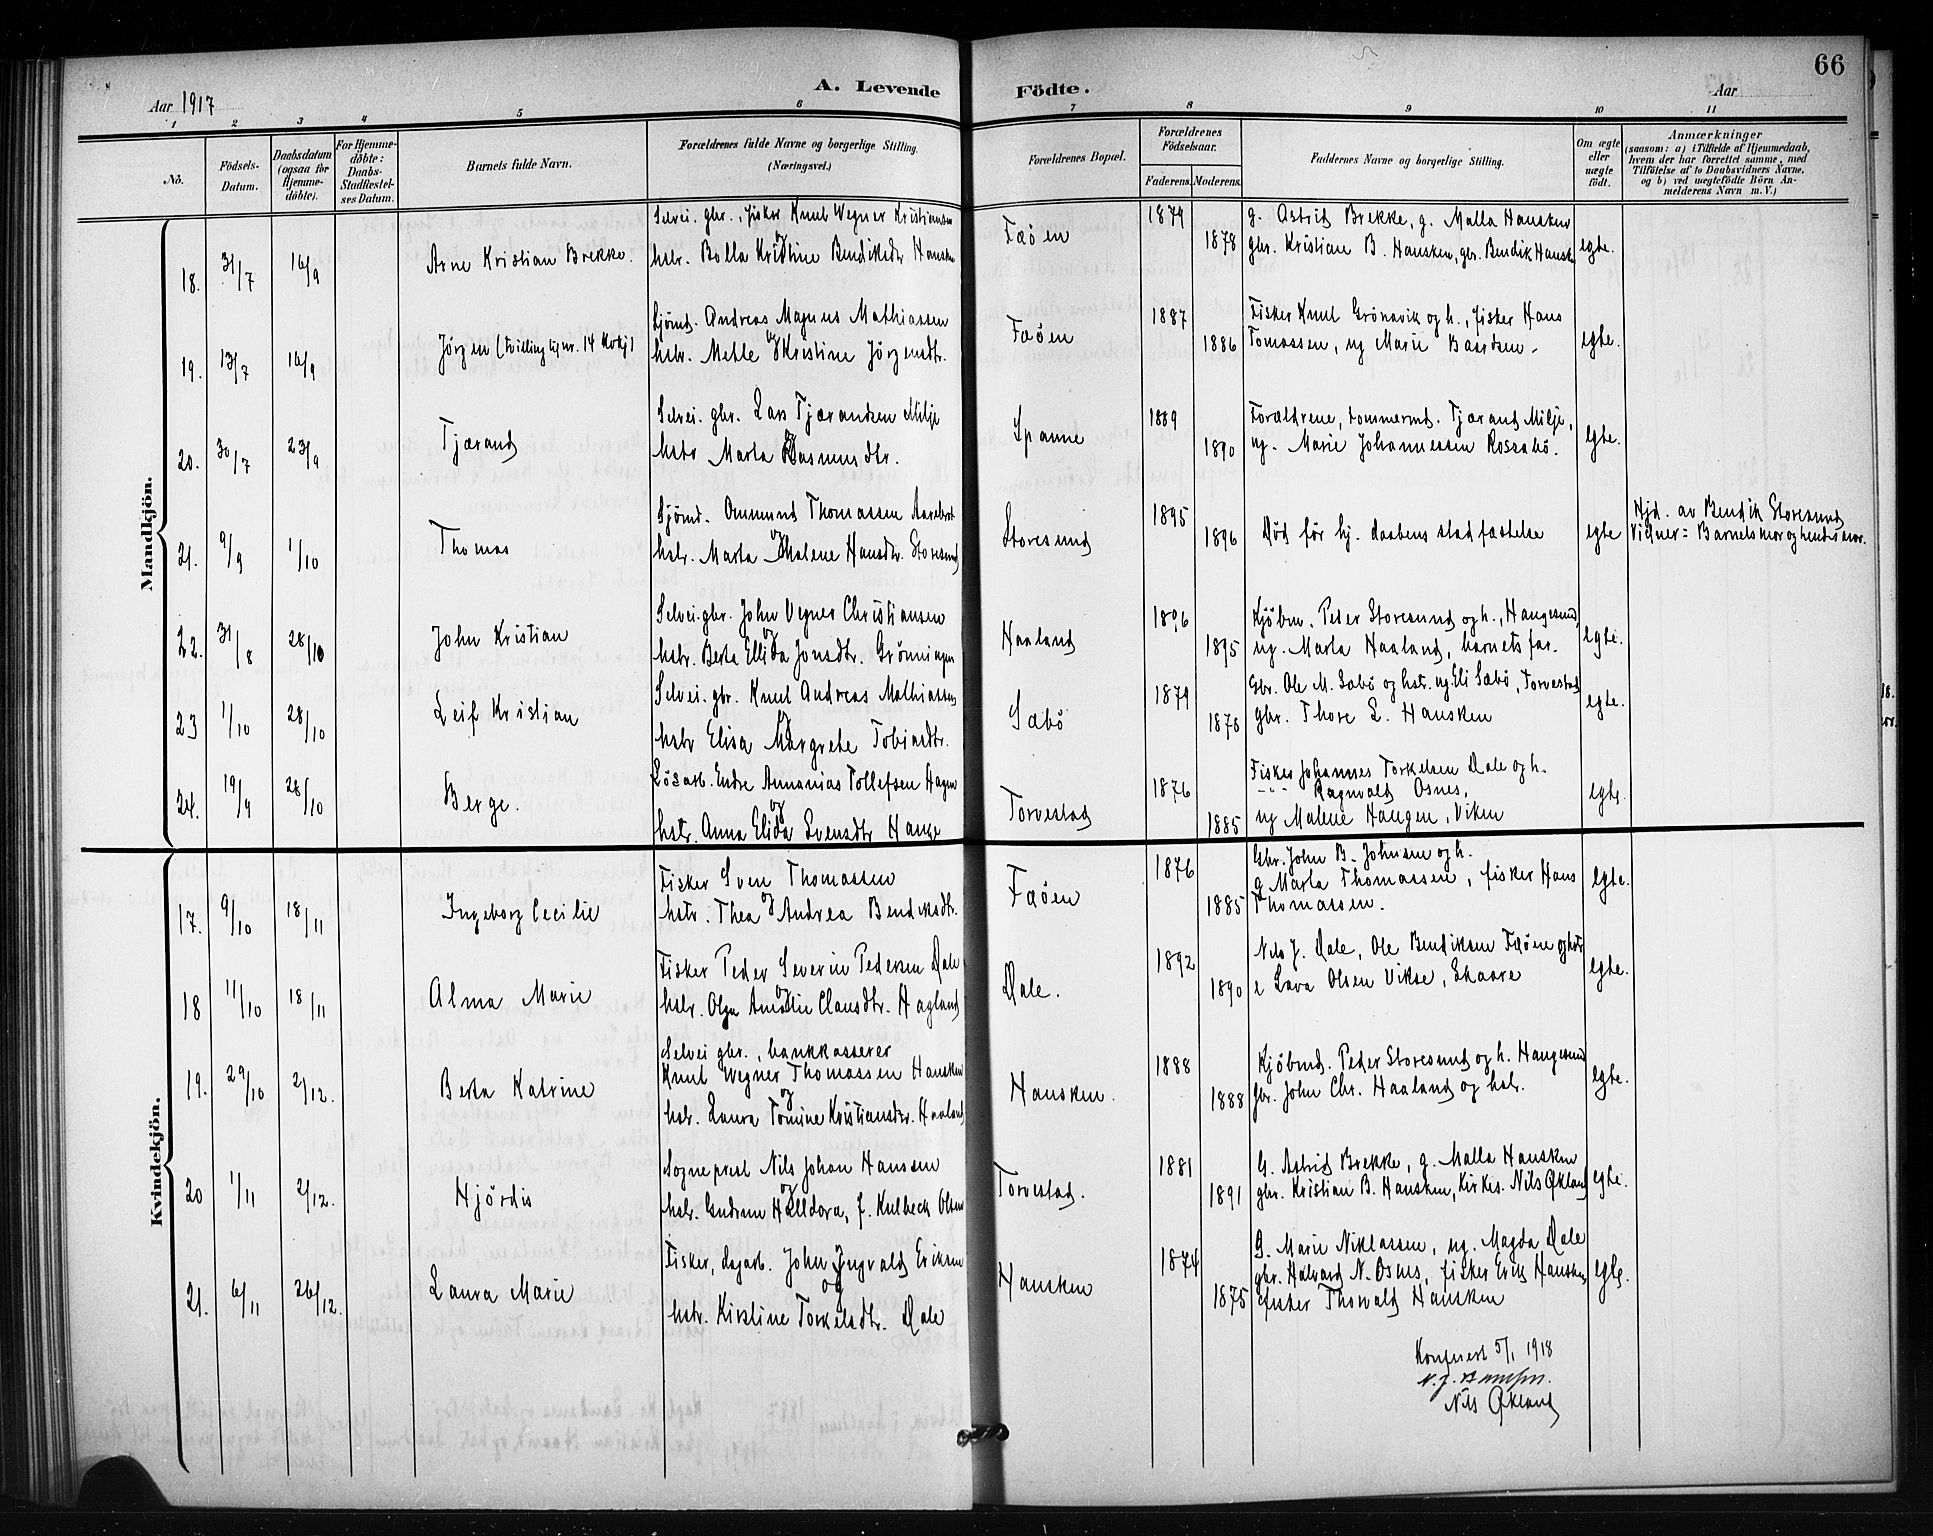 66
A. Levende Födte.
Aar 1917
Aar
1 2 3 4 5 6 7 8 9 10 11
No.
Födsels-Datum.
Daabsdatum (ogsaa for Hjemmedöbte).
For Hjemmedöbte: Daabs-Stadfæstelses Datum.
Barnets fulde Navn.
Forældrenes fulde Navne og borgerlige Stilling. (Næringsvei.)
Forældrenes Bopæl.
Forældrenes Födselsaar.
Faderens. Moderens.
Faddernes Navne og borgerlige Stilling.
Om ægte eller uægte födt.
Anmærkninger
(saasom: a) i Tilfælde af Hjemmedaab, hvem der har forrettet samme, med Tilföielse af to Daabsvidners Navne, og b) ved uægtefödte Börn Anmelderens Navn m. V.)
Mandkjön.
18. 31/7 16/9 Arne Kristian Brekke.
Selvei. gbr., fisker Knut Wegner Kristiansen
og
hstr. Bolla Kristine Bendiksdtr Hausken
Fæöen 1879 1878
g. Astrid Brekke, g. Malla Hausken
gbr. Kristian B. Hausken, gbr. Bendik Hausken
egte.
19. 13/7 16/9 Jörgen (tvilling til nr. 14 kvkj)
Sjömd. Andreas Magnus Mathiassen
og
hstr. Mette Kristine Jörgensdtr.
Fæöen 1887 1886
Fisker Knut Grönavik og h., fisker Hans
Tomassen, ug Marie Baardsen.
egte.
20. 30/7 23/9 Tjærand
Selvei. gbr. Lars Tjærandsen Milje
og
hstr Marta Rasmusdtr.
Spanne 1889 1890
Forældrene, tømmermd. Tjærand Milje,
ug. Marie Johannessen Rossabö.
egte.
21. 9/9 1/10 Thomas
Sjömd. Ommund Thomassen
og
hstr. Marta Malene Hansdtr. Storesund
Storesund 1895 1896
Död før hj. daabens stadfæstelse
egte
Hjd. av Bendik Storesund
Vidner: Barnets mor og hendes mor.
22. 31/8 28/10 John Kristian
Selvei. gbr. John Vegner Christiansen
og
hstr. Berta Ellida Jonsdtr. Grönningen
Haaland 1896 1895
Kjöbm. Peder Storesund og h., Haugesund,
ug. Marta Haaland, barnets far.
egte.
23 1/10 28/10 Leif Kristian
Selvei. gbr. Knut Andreas Mathiassen
og
hstr Elisa Margrete Tobiasdtr.
Sæbö 1879 1878
Gbr. Ole M. Sæbö og hstr. ug. Eli Sæbö, Torvestad
gbr. Thore L. Hausken
egte.
24. 19/9 28/10 Berge.
Lösarb. Endre Annanias Tollefsen Hagen
og
hstr. Anna Elida Svensdtr Hauge
Torvestad 1876 1885
Fisker Johannes Torkelsen Dale og h.
-"- Ragnvald Osnes,
ug Malene Haugen, Viken
egte.
Kvindekjön.
17. 9/10 18/11 Ingeborg Cecilie
Fisker Sven Thomassen
og
hstr. Thea Andrea Bendiksdtr.
Fæöen 1876 1885
Gbr. John B. Johnsen og h.
g Marta Thomassen, fisker Hans
Thomassen.
egte.
18 11/10 18/11 Alma Marie
Fisker Peder Severin Pedersen Dale
og
hstr. Olga Amalie Clausdtr. Hagland
Dale. 1892 1890
Nils J. Dale, Ole Bendiksen Fæöen og hstr
e Lava Olsen Vikse, Skaare
egte.
19. 29/10 2/12. Berta Katrine
Selvei gbr., bankkasserer
Knut Wegner Thomassen Hausken
og
hstr. Laura Tomine Kristiansdtr. Haaland
Hausken. 1888 1888
Kjöbmd. Peder Storesund og h. Haugesund
gbr. John Chr. Haaland og hstr.
egte.
20 1/11 2/12. Hjördis
Sogneprest Nils Johan Hanssen
og
hstr. Gudrun Halldora, f. Kulbeck Olsen
Torvestad. 1881 1891
G. Astrid Brekke, g. Malla Hausken
gbr. Kristian B. Hausken, Kirkes. Nils Økland
egte.
21. 6/11 26/12. Laura Marie
Fisker, dagarb. John Ingvald Eriksen
og
hstr. Kirstine Torkelsdtr. Dale
Hausken 1874 1875
G. Marie Niklassen, ug. Magda Dale
gbr. Halvard N. Osnes, fisker Erik Hausken
fisker Thorvald Hausken
egte.
Konfereret 5/1 1918
N. J. Hanssen.
Nils Økland